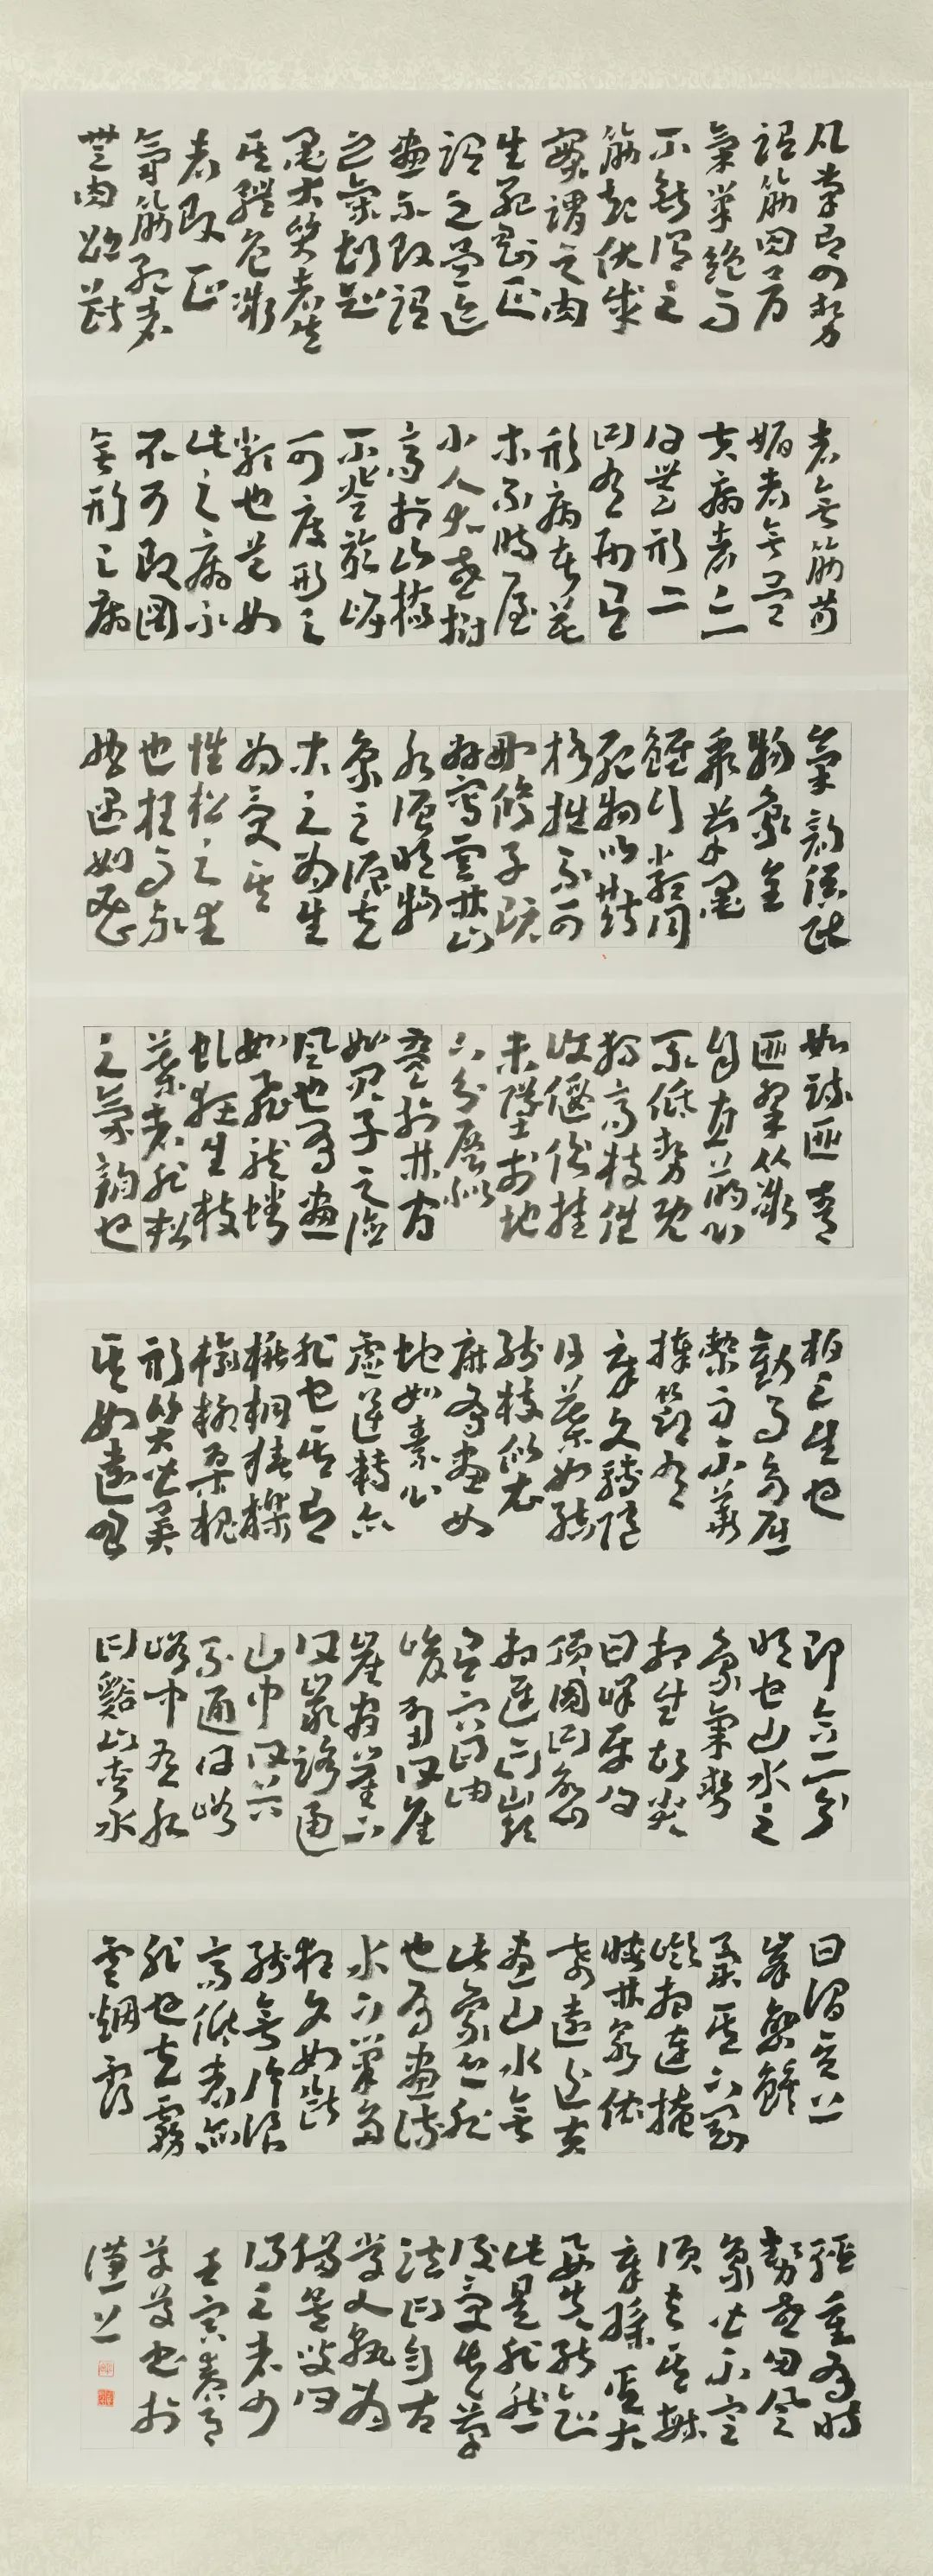 凡筆有四勢
謂筋肉骨
氣筆絕而
不斷謂之
筋起伏成
實謂之肉
生死剛正
謂之骨跡
畫不敗謂
之氣故知
墨大質者失
其體色微
者敗正
氣筋死者
無肉跡斷
者無筋苟
媚者無骨
夫病者二一
曰無形二
曰有形有
形病者花
木不時屋
小人大或樹
高於山橋
不登於岸
可度形之
類也是如
此之病尔
不可改圖
無形之病
氣韻俱泯
物象全
乖筆墨
雖行類同
死物以斯
格拙不可
刪修子既
好寫雲林山
水須明物
象之源夫
木之為生
為受其
性松之生
也枉而不
曲遇如密
如疏匪青
匪翠從微
自直萌心
不低勢既
獨高枝低
復偃倒挂
未墜於地
下分層似
疊於林間
如君子之德
風也有畫
如飛龍蟠
虬狂生枝
葉者非松
之氣韻也
柏之生也
動而多屈
繁而不華
捧節有
章文轉隨
日葉如結
線枝似衣
麻有畫如
蛇如素心
虛逆轉亦
非也其有
楸桐椿櫟
榆柳桑槐
形質皆異
其如遠思
即合一一分
明也山水之
象氣勢
相生故尖
曰峰平曰
頂圓曰巒
相連曰嶺
有穴曰岫
峻壁曰崖
崖間崖下
曰巖路通
山中曰谷
不通曰峪
峪中有水
曰谿山夾水
曰澗其上
峰巒雖
異其下岡
嶺相連掩
映林泉依
希遠近夫
畫山水無
此象亦非
也有畫流
水下筆多
狂文如斷
線無片浪
高低者亦
非也夫霧
雲煙靄
輕重有時
勢或因風
象皆不定
須去其繁
章採其大
要先能知
此是非然
後受其筆
法曰自古
學人孰為
備矣叟曰
得之者少
壬寅春月
書於
漢上